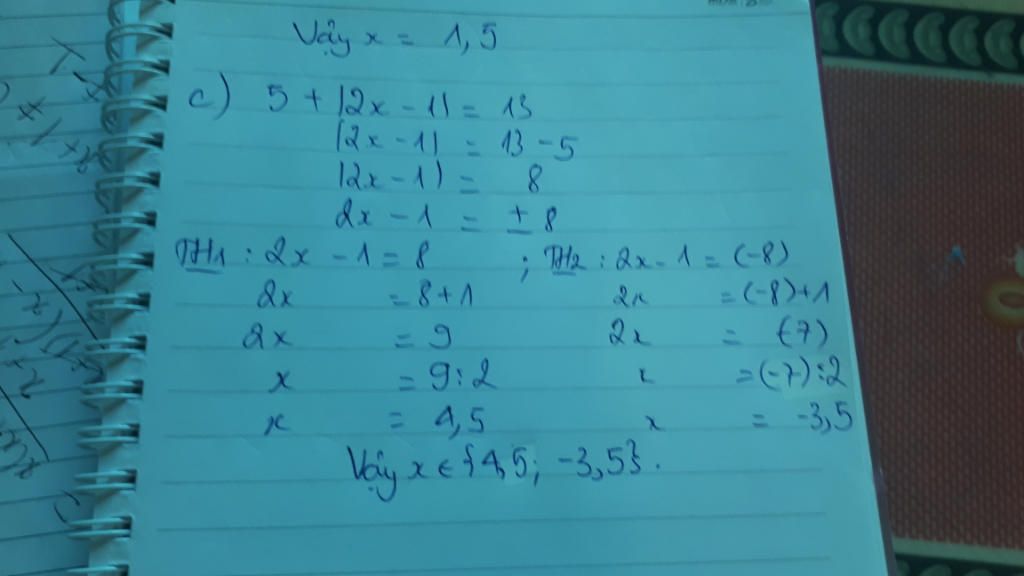 Vậy x = 1,5
c) 5 + |2x - 1| = 13
|2x - 1| = 13 - 5
|2x - 1| = 8
2x - 1 = ± 8
TH1 : 2x - 1 = 8 ; TH2 : 2x - 1 = (-8)
2x = 8 + 1 2x = (-8) + 1
2x = 9 2x = (-7)
x = 9 : 2 x = (-7) : 2
x = 4,5 x = -3,5
Vậy x ∈ {4,5; -3,5}.